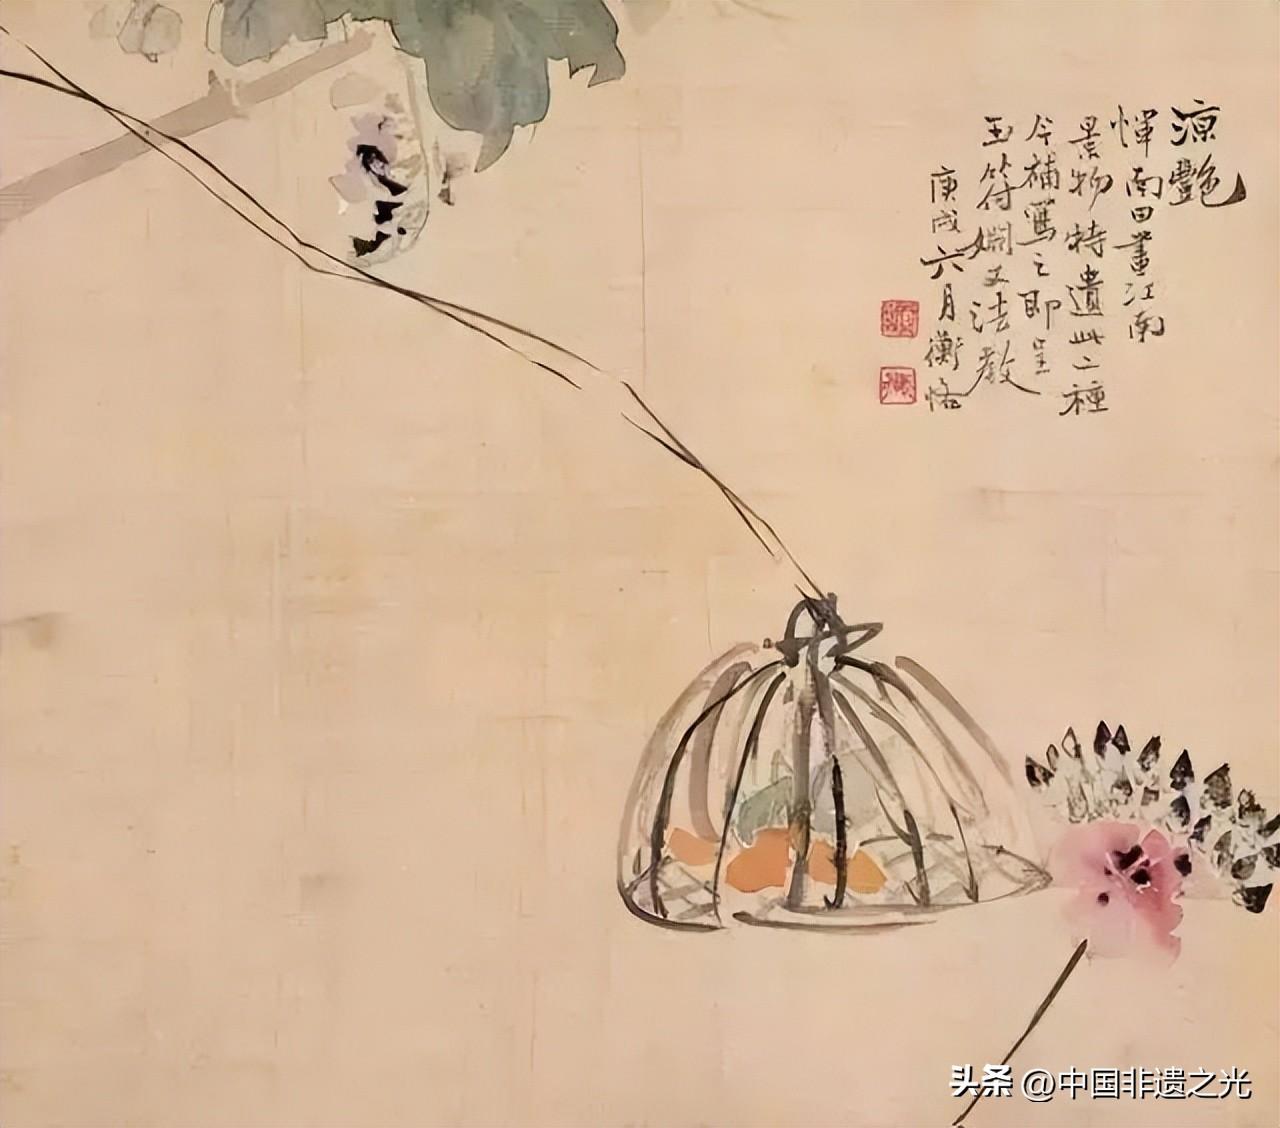 涼艷
惲南田畫江南
景物特遺此二種
今補寫之即呈
玉符婣丈法教
庚戌六月衡恪
头条 @中国非遗之光